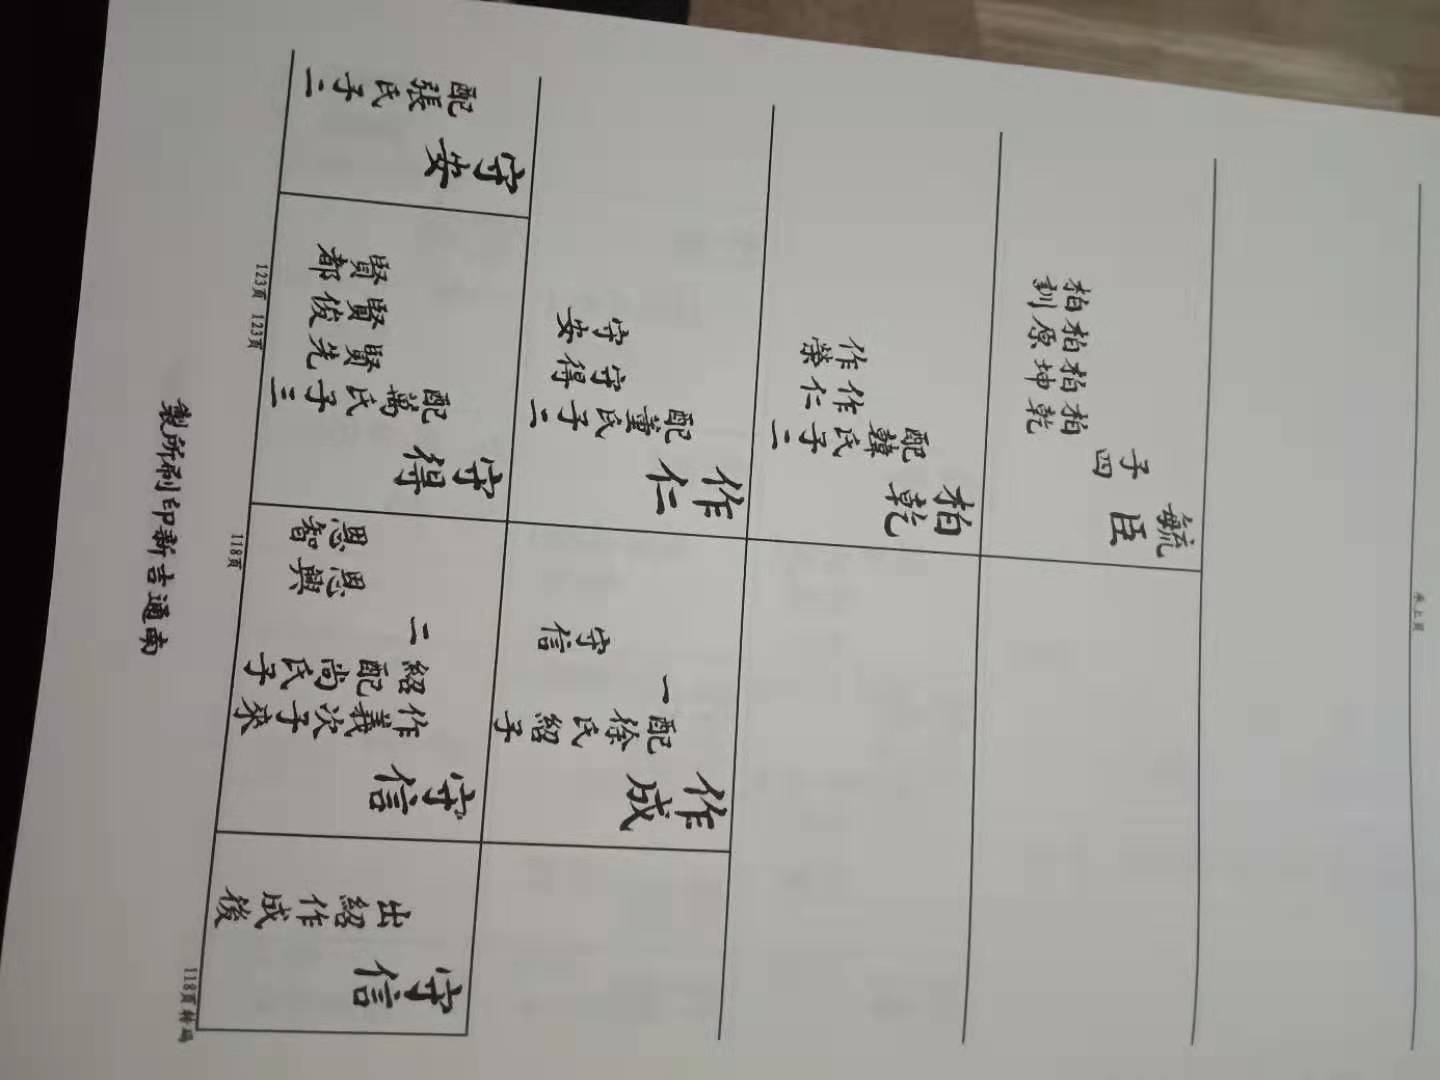 承上頁
毓臣
子四
柏乾
柏坤
柏原
柏釗
柏乾
配韓氏子二
作仁
作榮
作成
配徐氏紹子
一
守信
作仁
配董氏子二
守得
守安
守信
出紹作成後
守信
作義次子來
紹配尚氏子
二
恩興
恩智
守得
配萬氏子三
賢先
賢俊
賢都
守安
配張氏子二
118頁转码
118頁
123頁
123頁
南通吉新印刷所製